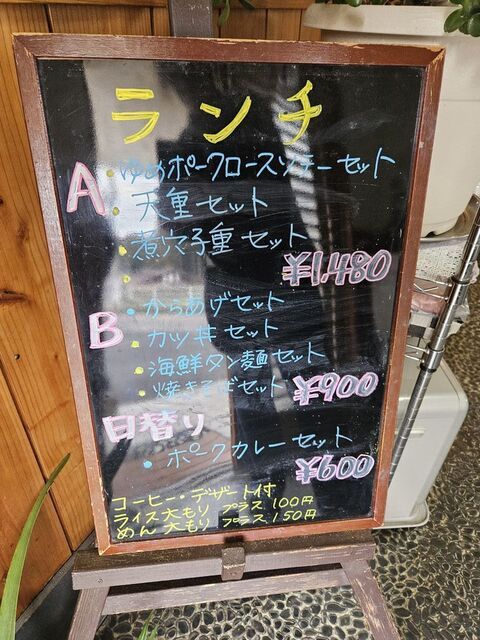 ランチ
A・ゆめポークロースソテーセット
・天重セット
・煮穴子重セット
・
¥1,480
B・からあげセット
・カツ丼セット
・海鮮タン麺セット
・焼きそばセット ¥900
日替り
・ポークカレーセット
¥600
コーヒー・デザート付
ライス大もり プラス100円
めん大もり プラス150円